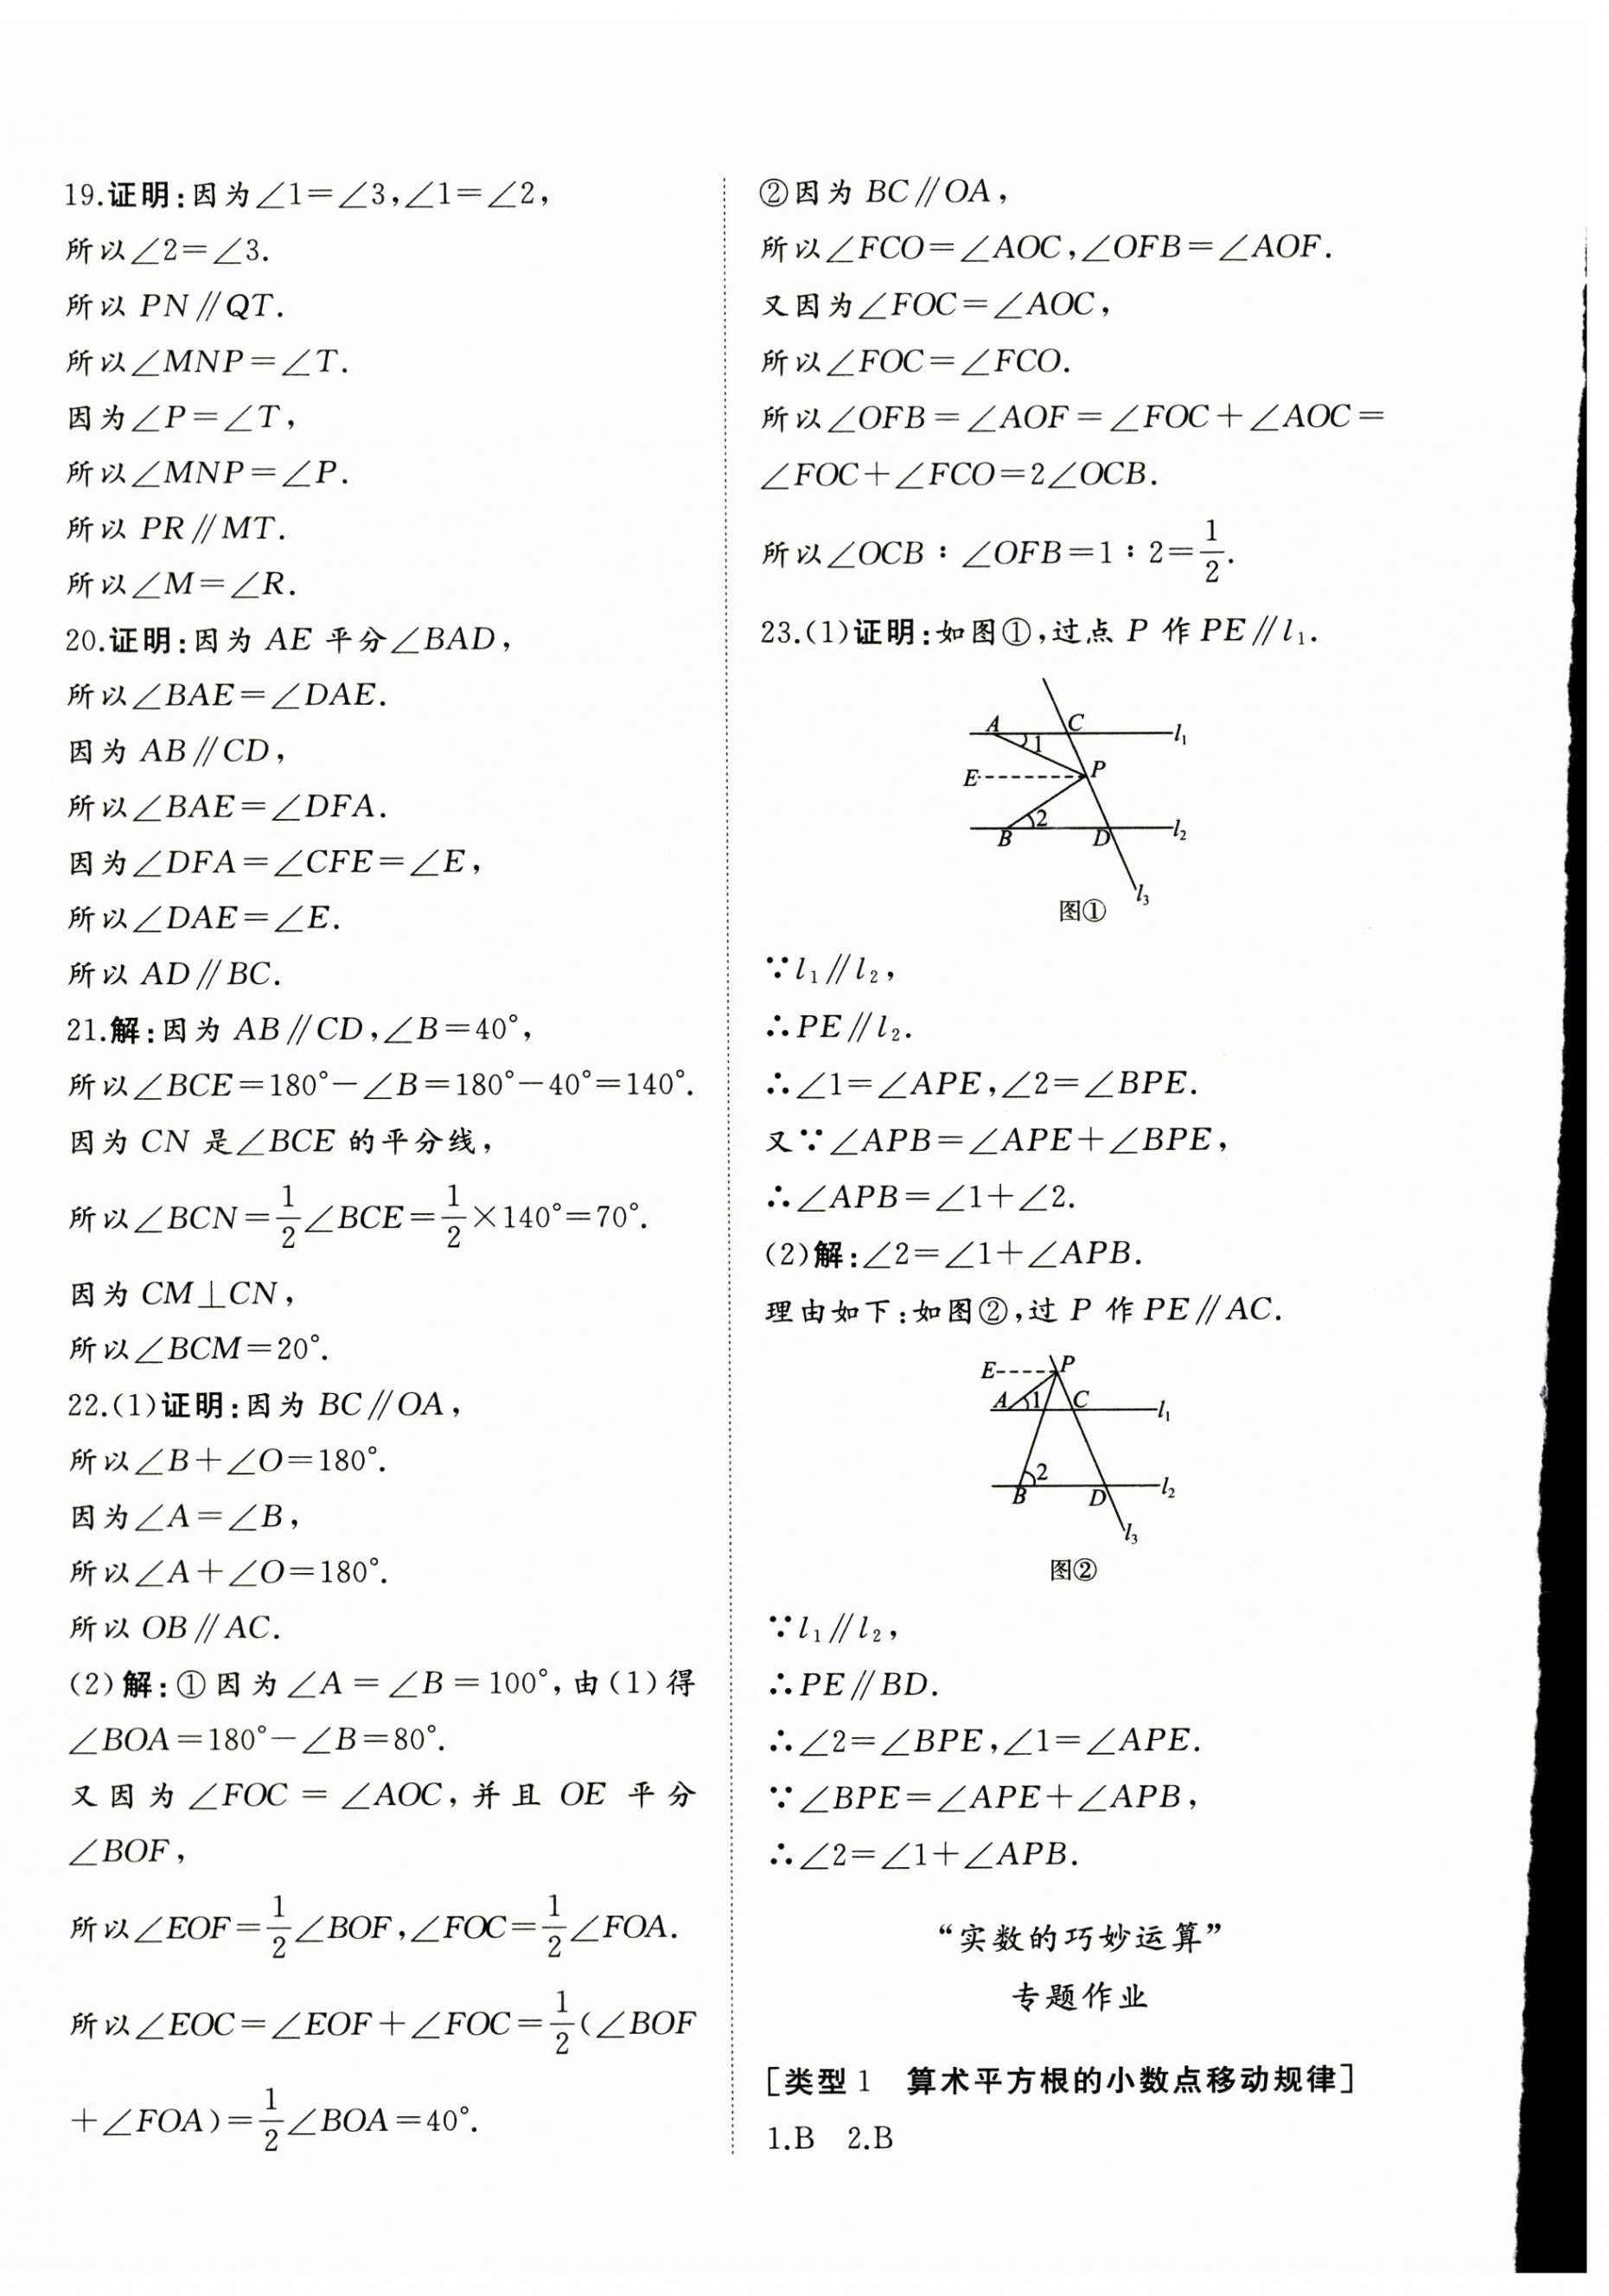 19.证明:因为∠1=∠3,∠1=∠2,
所以∠2=∠3.
所以 PN∥QT.
所以∠MNP=∠T.
因为∠P=∠T,
所以∠MNP=∠P.
所以 PR∥MT.
所以∠M=∠R.
20.证明:因为 AE 平分∠BAD,
所以∠BAE=∠DAE.
因为 AB∥CD,
所以∠BAE=∠DFA.
因为∠DFA=∠CFE=∠E,
所以∠DAE=∠E.
所以 AD∥BC.
21.解:因为 AB∥CD,∠B=40°,
所以∠BCE=180°-∠B=180°-40°=140°.
因为 CN 是∠BCE 的平分线,
所以∠BCN=1/2∠BCE=1/2×140°=70°.
因为 CM⊥CN,
所以∠BCM=20°.
22.(1)证明:因为 BC∥OA,
所以∠B+∠O=180°.
因为∠A=∠B,
所以∠A+∠O=180°.
所以 OB∥AC.
(2)解:①因为∠A=∠B=100°,由(1)得
∠BOA=180°-∠B=80°.
又因为∠FOC=∠AOC,并且 OE 平分
∠BOF,
所以∠EOF=1/2∠BOF,∠FOC=1/2∠FOA.
所以∠EOC=∠EOF+∠FOC=1/2(∠BOF
+∠FOA)=1/2∠BOA=40°.
②因为 BC∥OA,
所以∠FCO=∠AOC,∠OFB=∠AOF.
又因为∠FOC=∠AOC,
所以∠FOC=∠FCO.
所以∠OFB=∠AOF=∠FOC+∠AOC=
∠FOC+∠FCO=2∠OCB.
所以∠OCB:∠OFB=1:2=1/2.
23.(1)证明:如图①,过点 P 作 PE∥l₁.
A C l₁
1
E P
2
B D l₂
l₃
图①
∵l₁∥l₂,
∴PE∥l₂.
∴∠1=∠APE,∠2=∠BPE.
又∵∠APB=∠APE+∠BPE,
∴∠APB=∠1+∠2.
(2)解:∠2=∠1+∠APB.
理由如下:如图②,过 P 作 PE∥AC.
E P
A 1 C l₁
2
B D l₂
l₃
图②
∵l₁∥l₂,
∴PE∥BD.
∴∠2=∠BPE,∠1=∠APE.
∵∠BPE=∠APE+∠APB,
∴∠2=∠1+∠APB.
“实数的巧妙运算”
专题作业
[类型 1 算术平方根的小数点移动规律]
1.B 2.B